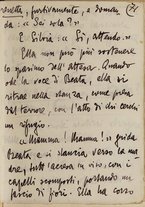 renetta, furtivamente, e doman-
da: « Sei sola? »
E Silvia: « Sì, attendo. »
Ella non può più sostenere
lo spasimo dell'attesa. Quando
ode la voce di Beata, ella si
ritrae nella stanza, come presa
dal terrore, con l'atto di chi cerchi
un rifugio.
« Mamma! Mamma! » grida
Beata e si slancia verso la ma-
dre, tutt'accesa in viso, con i
capelli scomposti, portando un
fascio di fiori. Ella ha corso